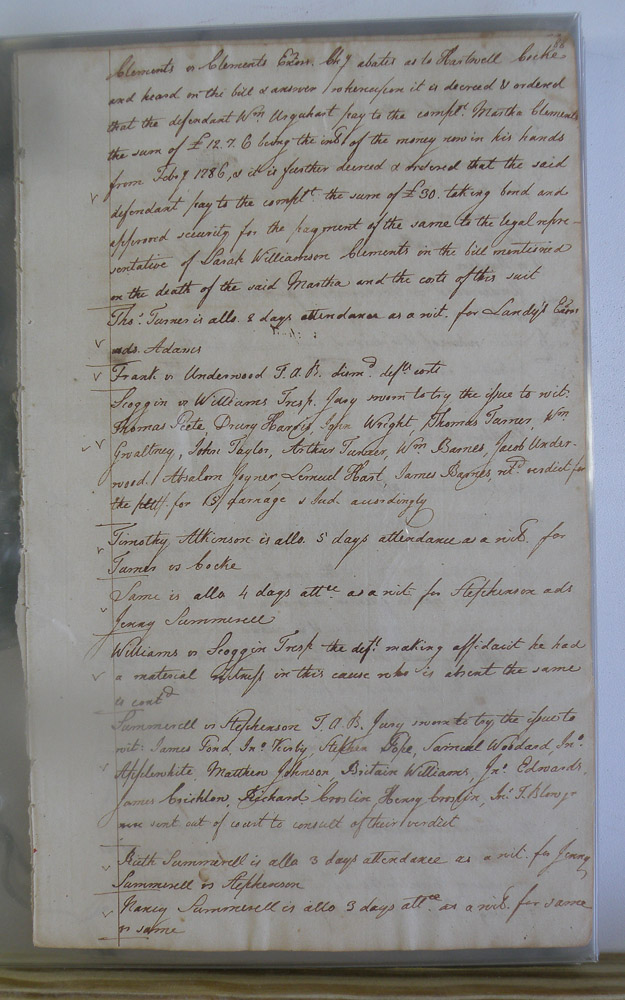 Clements vs Clements Exors. Chy abates as to Hartwell Cocke
and heard on the bill & answer whereupon it is decreed & ordered
that the defendant Wm Urquhart pay to the complt. Martha Clements
the sum of £12.7.6 being the int. of the money now in his hands
from Feby 1786, & it is further decreed & ordered that the said
defendant pay to the complt. the sum of £30. taking bond and
approved security for the payment of the same to the legal repre-
sentative of Sarah Williamson Clements in the bill mentioned
on the death of the said Martha and the costs of this suit
Thos. Turner is allo. 2 days attendance as a wit. for Landy's Exors
ads. Adams
Frank vs Underwood T.A.B. dismd. defts costs
Scoggin vs Williams Tresp. Jury sworn to try the issue to wit:
Thomas Peete, Drury Harris, John Wright, Thomas Turner, Wm
Gwaltney, John Taylor, Arthur Turner, Wm Barnes, Jacob Under-
wood, Absalom Joyner Lemuel Hart, James Barnes, retd. verdict for
the pltff. for 15/ damage & Jud. accordingly
Timothy Atkinson is allo. 5 days attendance as a wit. for
Turner vs Cocke
Same is allo 4 days attce. as a wit. for Stephenson ads
Jenny Summerell
Williams vs Scoggin Tresp. the deft. making affidavit he had
a material witness in this cause who is absent the same
is contd
Summerell vs Stephenson T.A.B. Jury sworn to try the issue to
wit: James Jno. Kirby Stephen Pope, Samuel Woodard, Jno.
Applewhite, Matthew Johnson, Britain Williams, Jno. Edwards,
James Crichlon, Richard Croslin, Henry Croslin, Jno. T. Blow jr
were sent out of court to consult of their verdict
Ruth Summerell is allo 3 days attendance as a wit. for Jenny
Summerell vs Stephenson
Nancy Summerell is allo 3 days attce. as a wit. for same
vs same